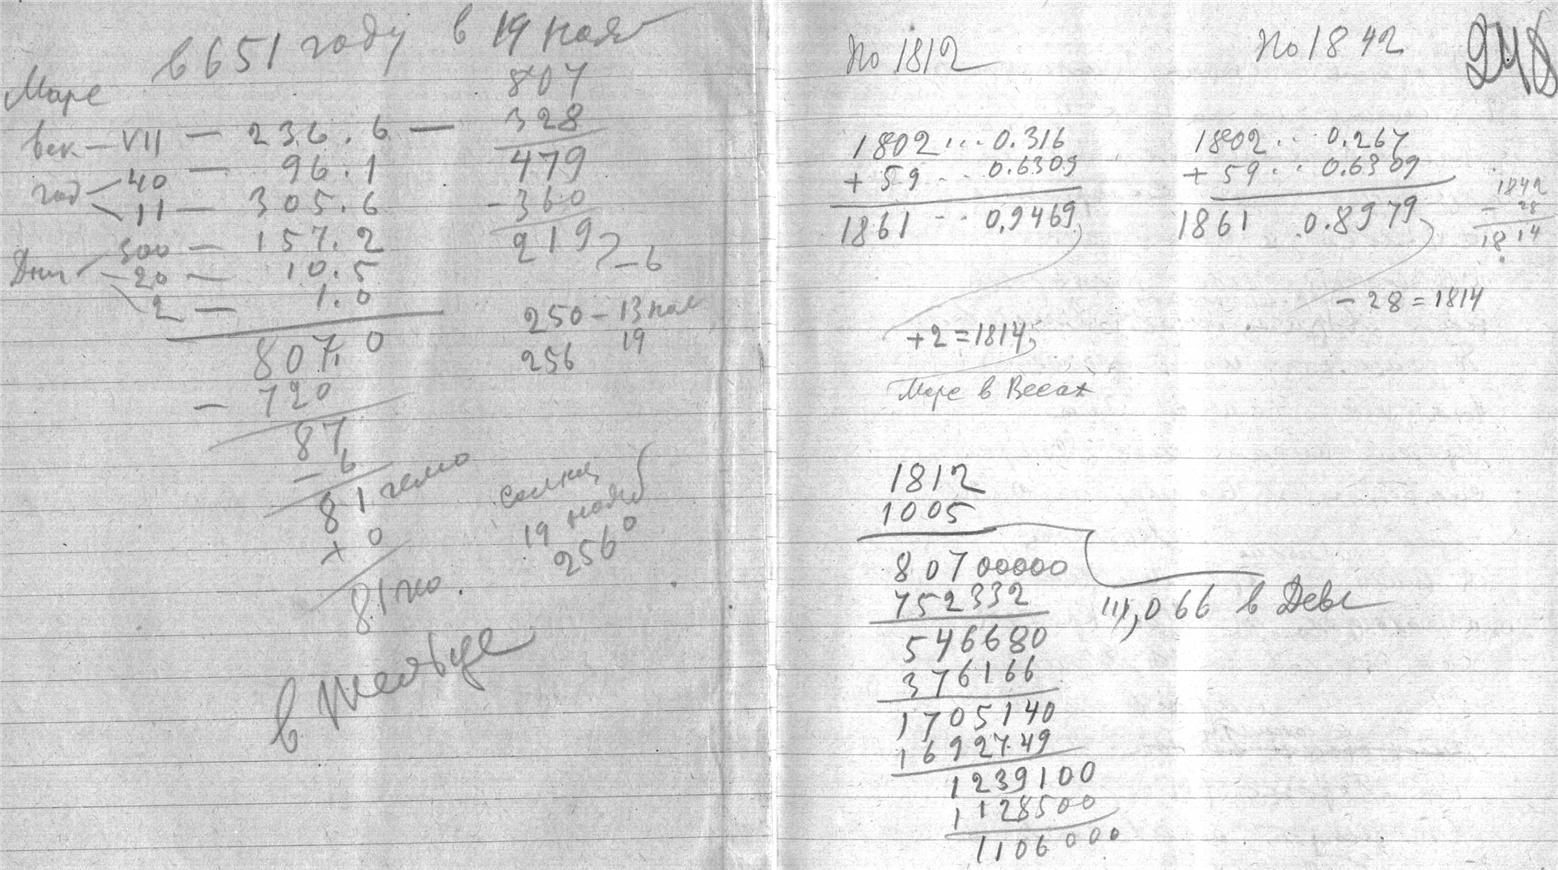 в 651 году в 19 нояб
Марс
век — VII — 236.6 —
год 40 — 96.1
11 — 305.6
Дни 300 — 157.2
— 20 — 10.5
2 — 1.0
807.0
— 720
87
— 6
81 гелио
+ 0
81 гео.
в Тельце
807
328
479
— 360
219
— 6
250 — 13 ноя
256 19
солнце
19 нояб
256°
По 1812
1802 ... 0.316
+ 59 ... 0.6309
1861 .. 0,9469
+ 2 = 1814
Марс в Весах
По 1842
248
1802 .. 0.267
+ 59 .. 0.6309
1861 0.8979
1842
— 28
1814
— 28 = 1814
1812
1005
80700000
752332
546680
376166
1705140
1692749
1239100
1128500
1106000
,066 в Деве